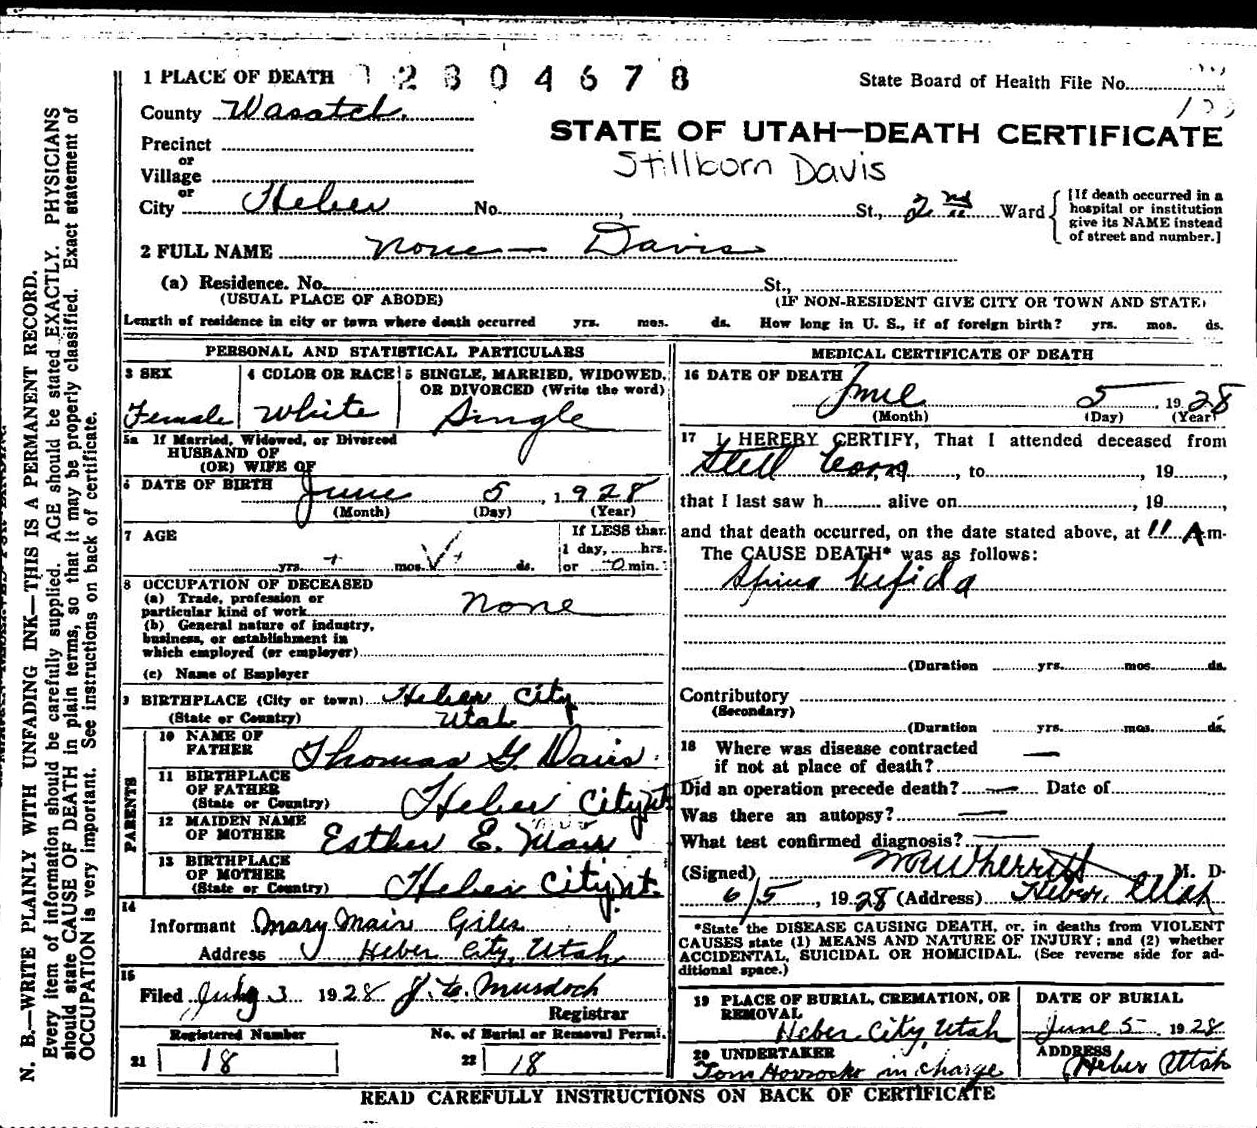 1 PLACE OF DEATH 2 8 0 4 6 7 8
State Board of Health File No.
County Wasatch.
STATE OF UTAH—DEATH CERTIFICATE
Precinct
or
Village
Stillborn Davis
or
City Heber No. , St., 2nd Ward
[If death occurred in a
hospital or institution
give its NAME instead
of street and number.]
2 FULL NAME None — Davis
(a) Residence. No. St.,
(USUAL PLACE OF ABODE) (IF NON-RESIDENT GIVE CITY OR TOWN AND STATE)
Length of residence in city or town where death occurred yrs. mos. ds. How long in U. S., if of foreign birth? yrs. mos. ds.
PERSONAL AND STATISTICAL PARTICULARS
3 SEX 4 COLOR OR RACE 5 SINGLE, MARRIED, WIDOWED,
OR DIVORCED (Write the word)
Female White Single
5a If Married, Widowed, or Divorced
HUSBAND OF
(OR) WIFE OF
6 DATE OF BIRTH June 5, 1928
(Month) (Day) (Year)
7 AGE If LESS than
1 day, hrs.
yrs. mos. ds. or 0 min.
8 OCCUPATION OF DECEASED
(a) Trade, profession or
particular kind of work None
(b) General nature of industry,
business, or establishment in
which employed (or employer)
(c) Name of Employer
9 BIRTHPLACE (City or town) Heber City
(State or Country) Utah
PARENTS
10 NAME OF
FATHER Thomas G. Davis
11 BIRTHPLACE
OF FATHER
(State or Country) Heber City, Ut.
12 MAIDEN NAME
OF MOTHER Esther E. Mair
13 BIRTHPLACE
OF MOTHER
(State or Country) Heber City, Ut.
14
Informant Mary Mair Giles
Address Heber City, Utah
15
Filed July 3 1928 J. W. Murdoch
Registrar
Registered Number No. of Burial or Removal Permi.
21 18 22 18
MEDICAL CERTIFICATE OF DEATH
16 DATE OF DEATH
June 5 1928
(Month) (Day) (Year)
17 I HEREBY CERTIFY, That I attended deceased from
Still born, to , 19 ,
that I last saw h alive on , 19 ,
and that death occurred, on the date stated above, at 11 A m.
The CAUSE DEATH* was as follows:
Spina bifida
(Duration yrs. mos. ds.
Contributory
(Secondary)
(Duration yrs. mos. ds.
18 Where was disease contracted
if not at place of death? —
Did an operation precede death? — Date of
Was there an autopsy? —
What test confirmed diagnosis? —
(Signed) Wherritt M. D.
6/5, 1928 (Address) Heber, Utah
*State the DISEASE CAUSING DEATH, or, in deaths from VIOLENT
CAUSES state (1) MEANS AND NATURE OF INJURY; and (2) whether
ACCIDENTAL, SUICIDAL OR HOMICIDAL. (See reverse side for ad-
ditional space.)
19 PLACE OF BURIAL, CREMATION, OR
REMOVAL
Heber City, Utah
DATE OF BURIAL
June 5 1928
20 UNDERTAKER
Tom in charge
ADDRESS
Heber Utah
READ CAREFULLY INSTRUCTIONS ON BACK OF CERTIFICATE
N. B.—WRITE PLAINLY WITH UNFADING INK—THIS IS A PERMANENT RECORD.
Every item of information should be carefully supplied. AGE should be stated EXACTLY. PHYSICIANS
should state CAUSE OF DEATH in plain terms, so that it may be properly classified. Exact statement of
OCCUPATION is very important. See instructions on back of certificate.